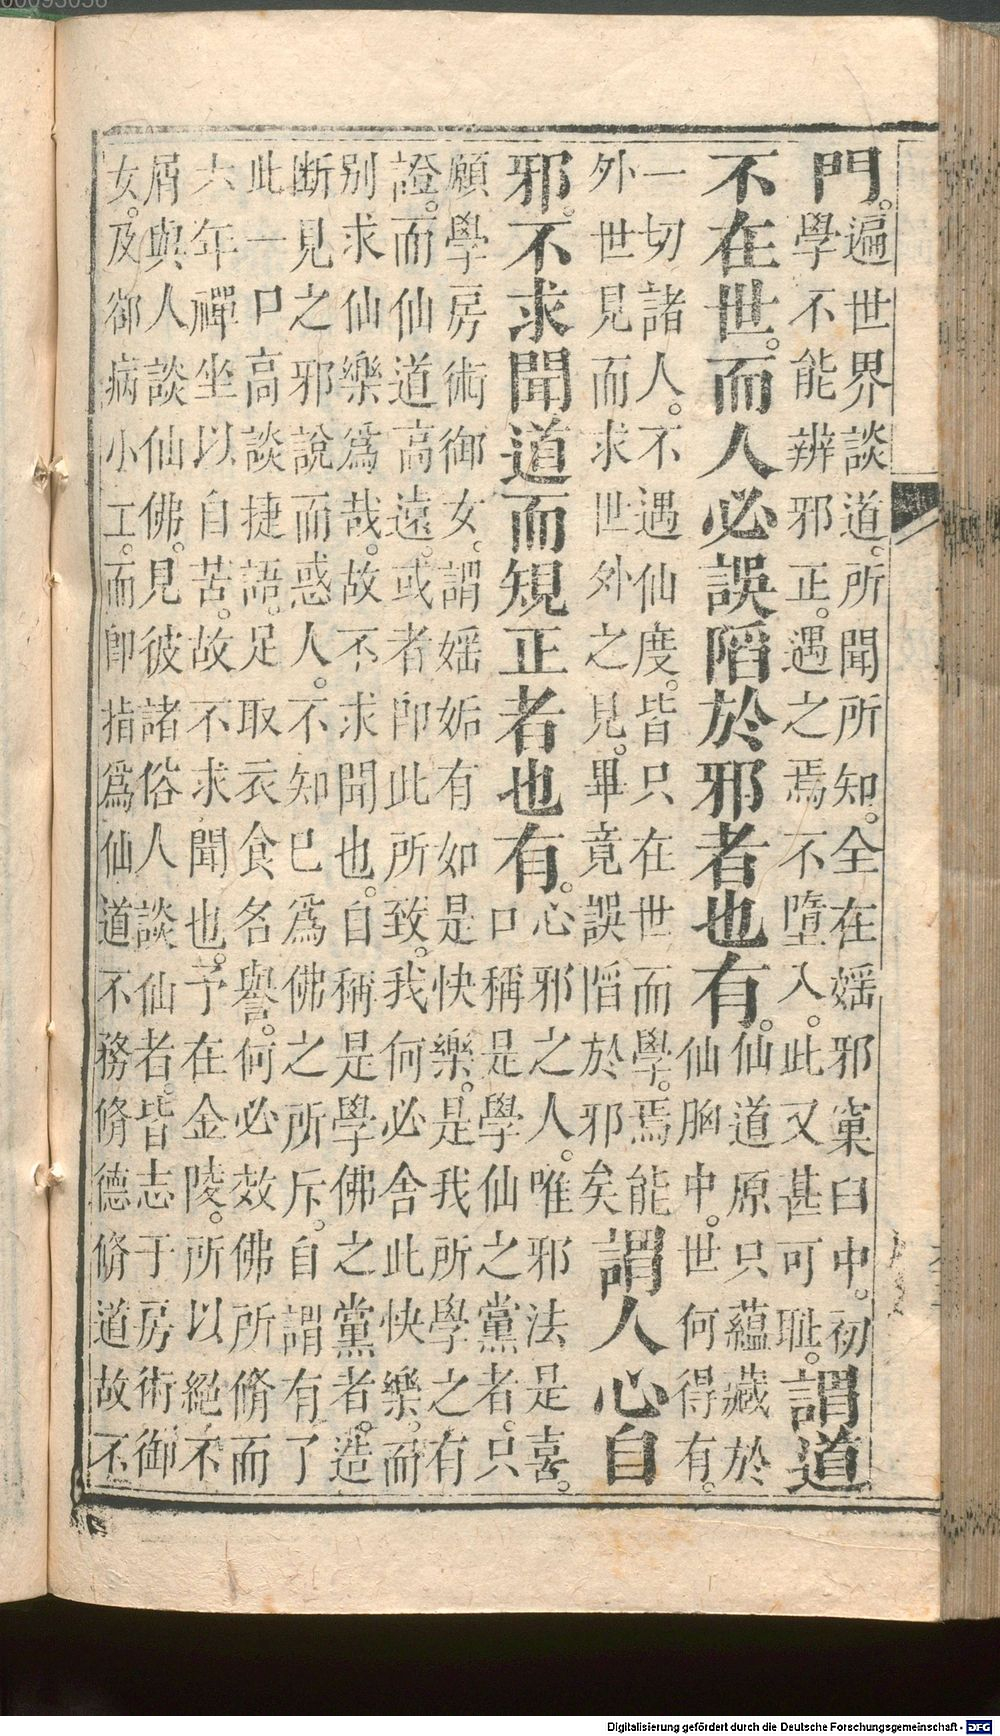 門。遍世界談道。所聞所知。全在婬邪窠臼中。初
學不能辨邪正。遇之焉不墮入。此又甚可耻。謂道
不在世。而人必誤陷於邪者也有。仙道原只蘊藏於
仙胸中。世何得有。
一切諸人。不遇仙度。皆只在世而學。焉能
外世見而求世外之見。畢竟誤陷於邪矣謂人心自
邪。不求聞道而規正者也有。心邪之人。唯邪法是喜。
口稱是學仙之黨者。只
願學房術御女。謂婬姤有如是快樂。是我所學之有
證。而仙道高遠。或者即此所致。我何必舍此快樂。而
别求仙樂爲哉。故不求聞也。自稱是學佛之黨者。造
断見之邪說而惑人。不知巳爲佛之所斥。自謂有了
此一口高談捷語。足取衣食名譽。何必效佛所脩而
六年禪坐以自苦。故不求聞也。予在金陵。所以絕不
屑與人談仙佛。見彼諸俗人談仙者。皆志于房術御
女。及郤病小工。而即指爲仙道不務脩德脩道故不
Digitalisierung gefördert durch die Deutsche Forschungsgemeinschaft - DFG